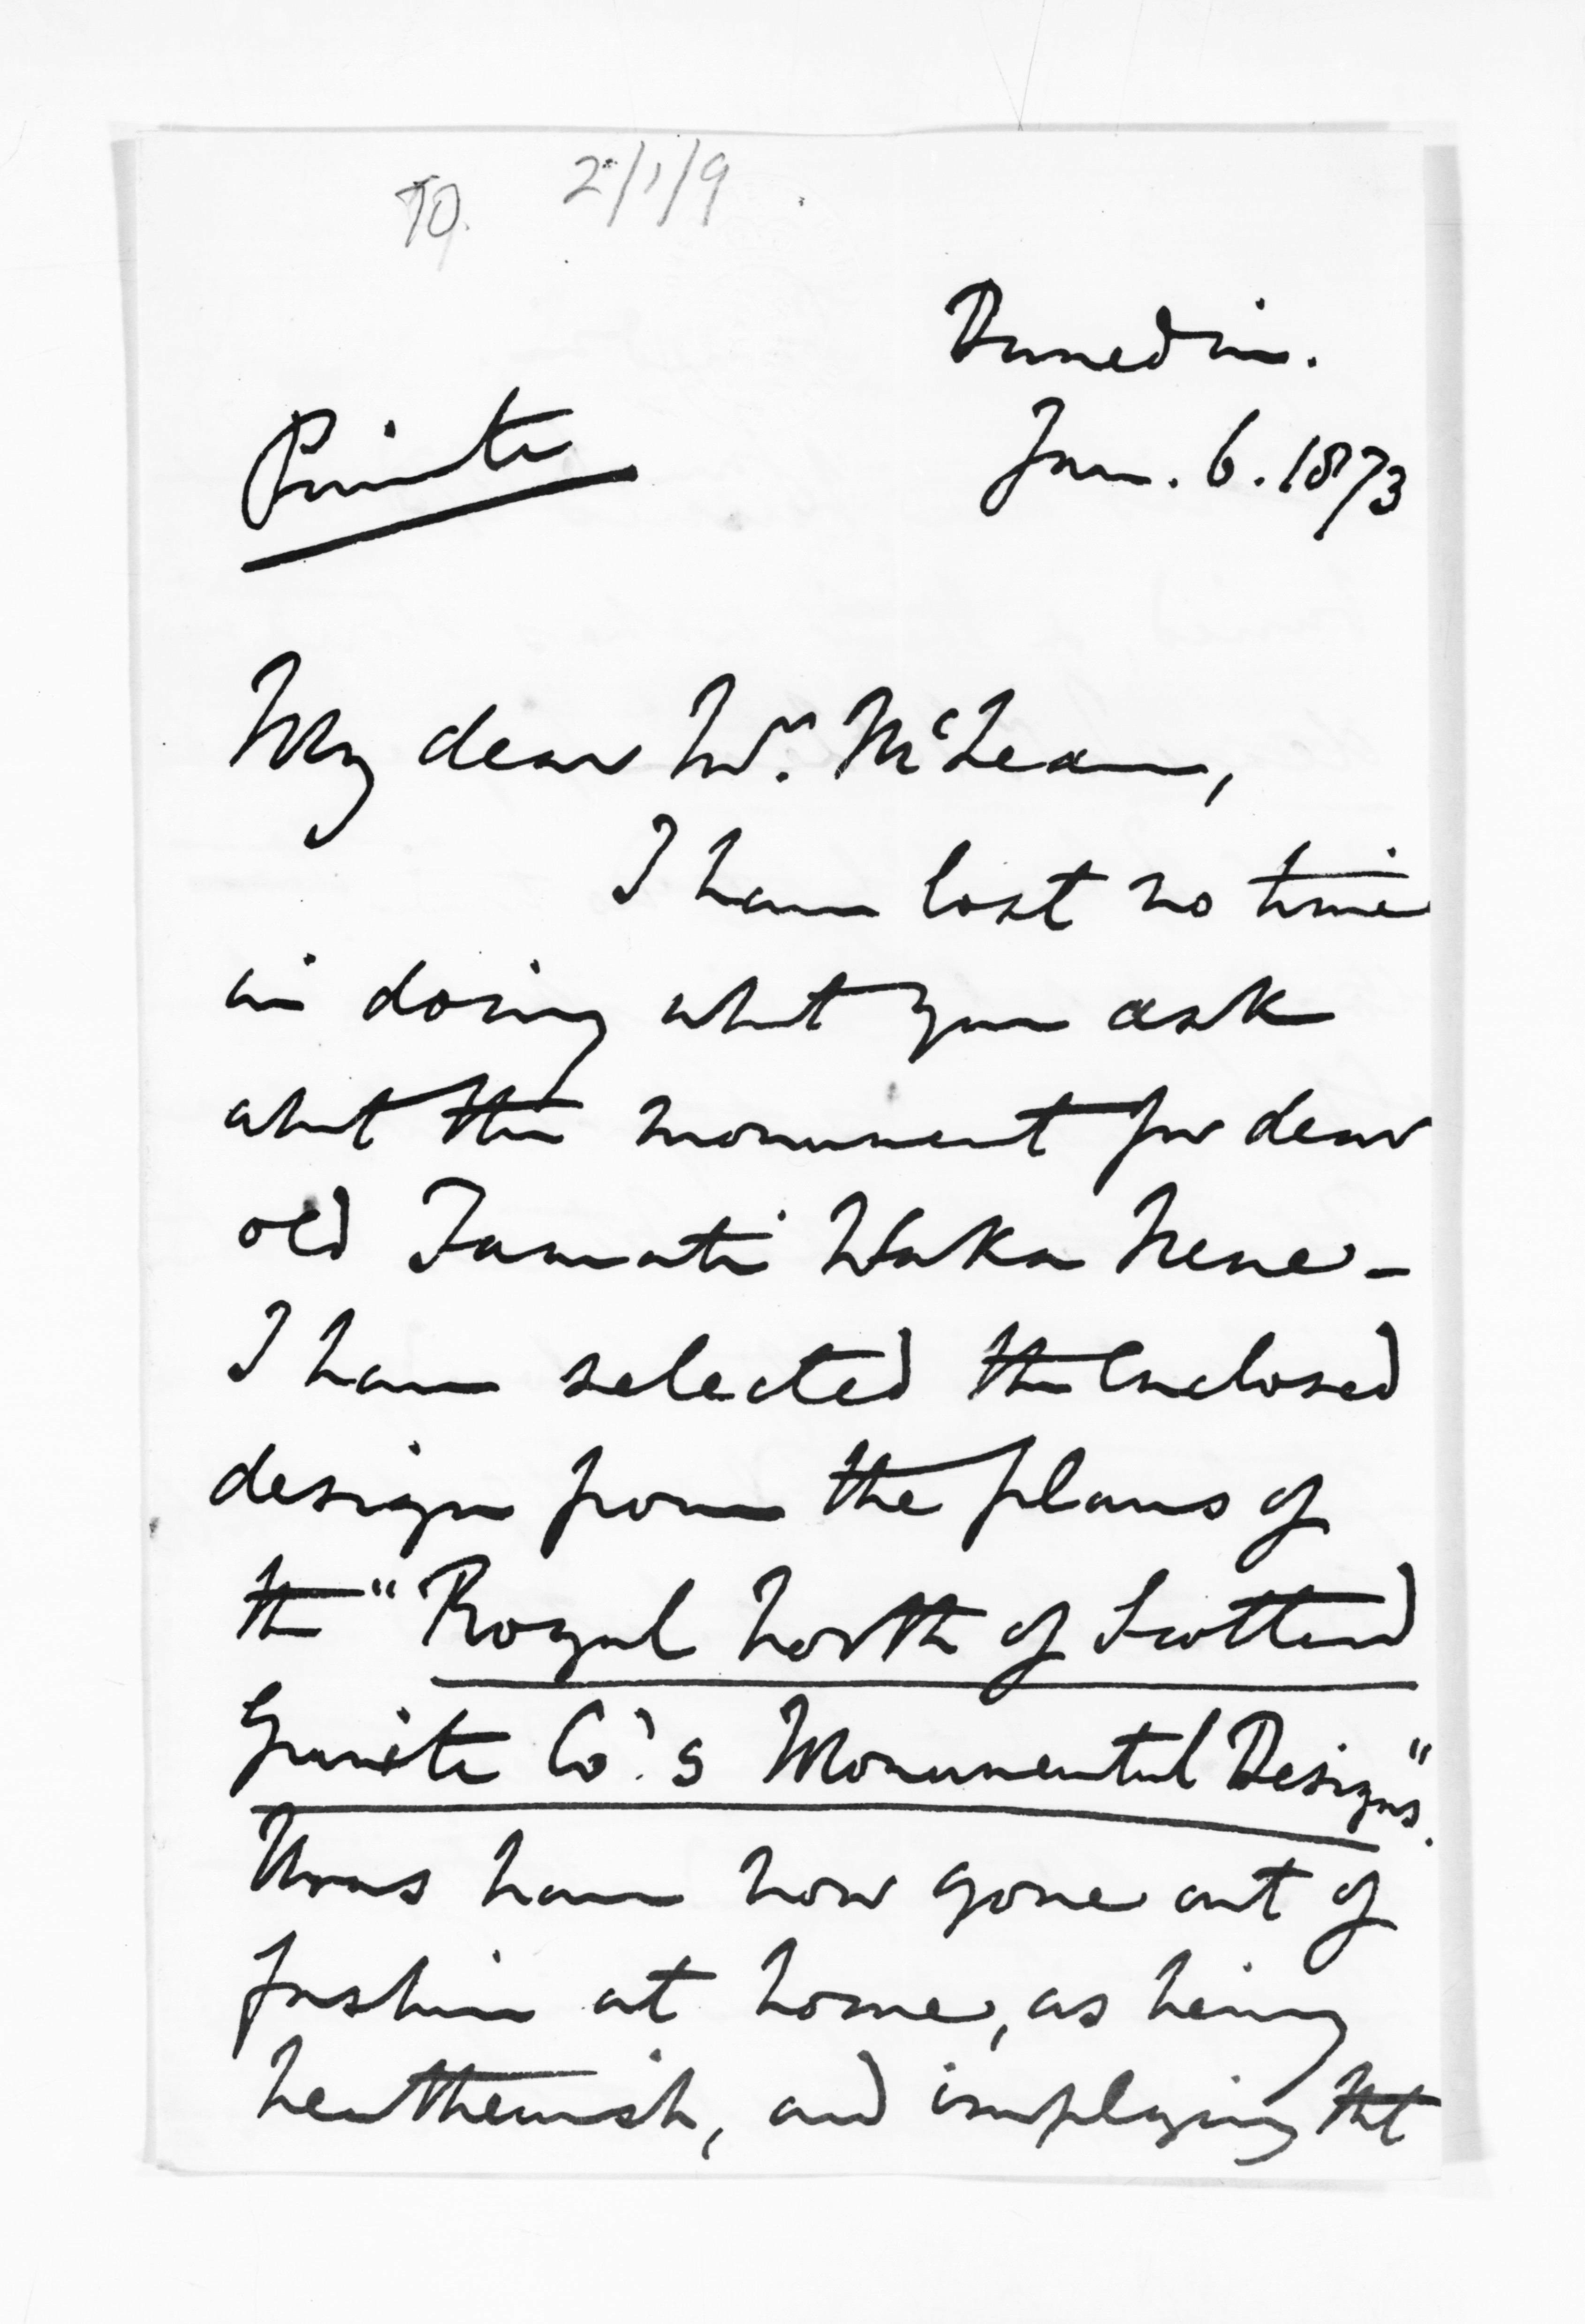 70. 2/1/9
Dunedin.
Jan. 6. 1873
Private
My dear Mr. McLean,
I have lost no time
in doing what you ask
about the monument for dear
old Tamati Waka Nene -
I have selected the enclosed
design from the plans of
the "Royal North of Scotland
Granite Co's Monumental Designs".
Urns have now gone out of
fashion at home, as being
heathenish, and implying that